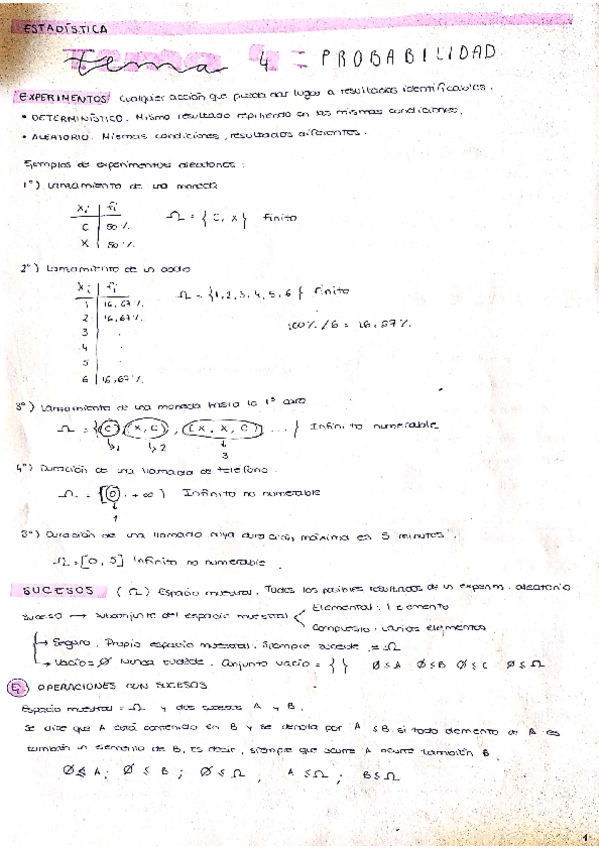 ESTADÍSTICA
tema 4 = PROBABILIDAD
EXPERIMENTOS Cualquier acción que pueda dar lugar a resultados identificables.
• DETERMINÍSTICO. Mismo resultado repitiendo en las mismas condiciones.
• ALEATORIO. Mismas condiciones, resultados diferentes.
Ejemplos de experimentos aleatorios:
1º) Lanzamiento de una moneda
xi | fi
C | 50%
X | 50%
Ω = { C, X } Finito
2º) Lanzamiento de un dado
xi | fi
1 | 16,67%
2 | 16,67%
3 .
4 .
5 .
6 | 16,67%
Ω = {1, 2, 3, 4, 5, 6 } Finito
100% / 6 = 16,67%
3º) Lanzamiento de una moneda hasta la 1ª cara
Ω = {(C), (X, C), (X, X, C) ... } Infinito numerable
↳1 ↳2 ↓3
4º) Duración de una llamada de teléfono
Ω = [0, +∞) Infinito no numerable
1
3º) Duración de una llamada cuya duración máxima es 5 minutos.
Ω = [0, 5] Infinito no numerable.
SUCESOS (Ω) Espacio muestral. Todos los posibles resultados de un experim. aleatorio
Suceso → Subconjunto del espacio muestral < Elemental: 1 elemento
Compuesto: varios elementos
→ Seguro. Propio espacio muestral. Siempre sucede = Ω
→ Vacío = Ø Nunca sucede. Conjunto vacío = { } Ø ≤ A Ø ≤ B Ø ≤ C Ø ≤ Ω
OPERACIONES CON SUCESOS
Espacio muestral = Ω y dos sucesos A y B.
Se dice que A está contenido en B y se denota por A ≤ B si todo elemento de A es
también un elemento de B, es decir, siempre que ocurre A ocurre también B.
Ø ≤ A; Ø ≤ B; Ø ≤ Ω, A ≤ Ω; B ≤ Ω
1